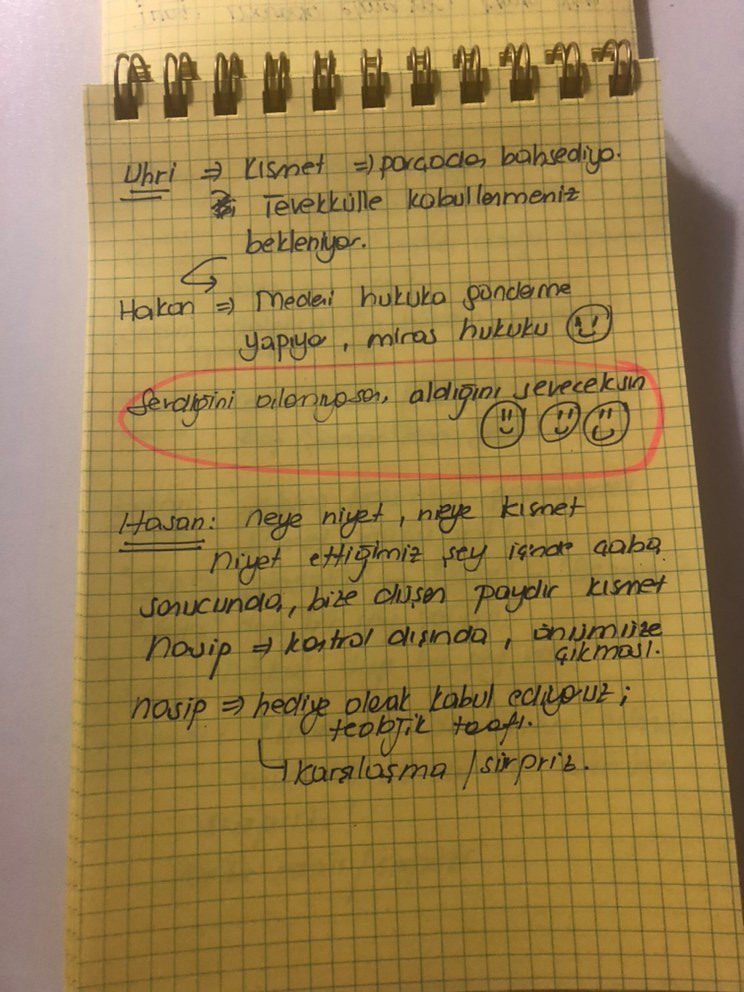 Uhri ⇒ Kısmet ⇒ parçada, bahsediyo.
Tevekkülle kabullenmeniz
bekleniyor.
Hakan ⇒ Medeni hukuka gönderme
yapıyo, miras hukuku
Sevdiğini alamıyosan, aldığını seveceksin
Hasan: neye niyet, neye kısmet
niyet ettiğimiz şey içinde çaba
sonucunda, bize düşen paydır kısmet
nasip ⇒ kontrol dışında, önümüze
çıkması.
nasip ⇒ hediye olarak kabul ediyoruz;
teolojik tarafı.
↳ karşılaşma / sürpriz.